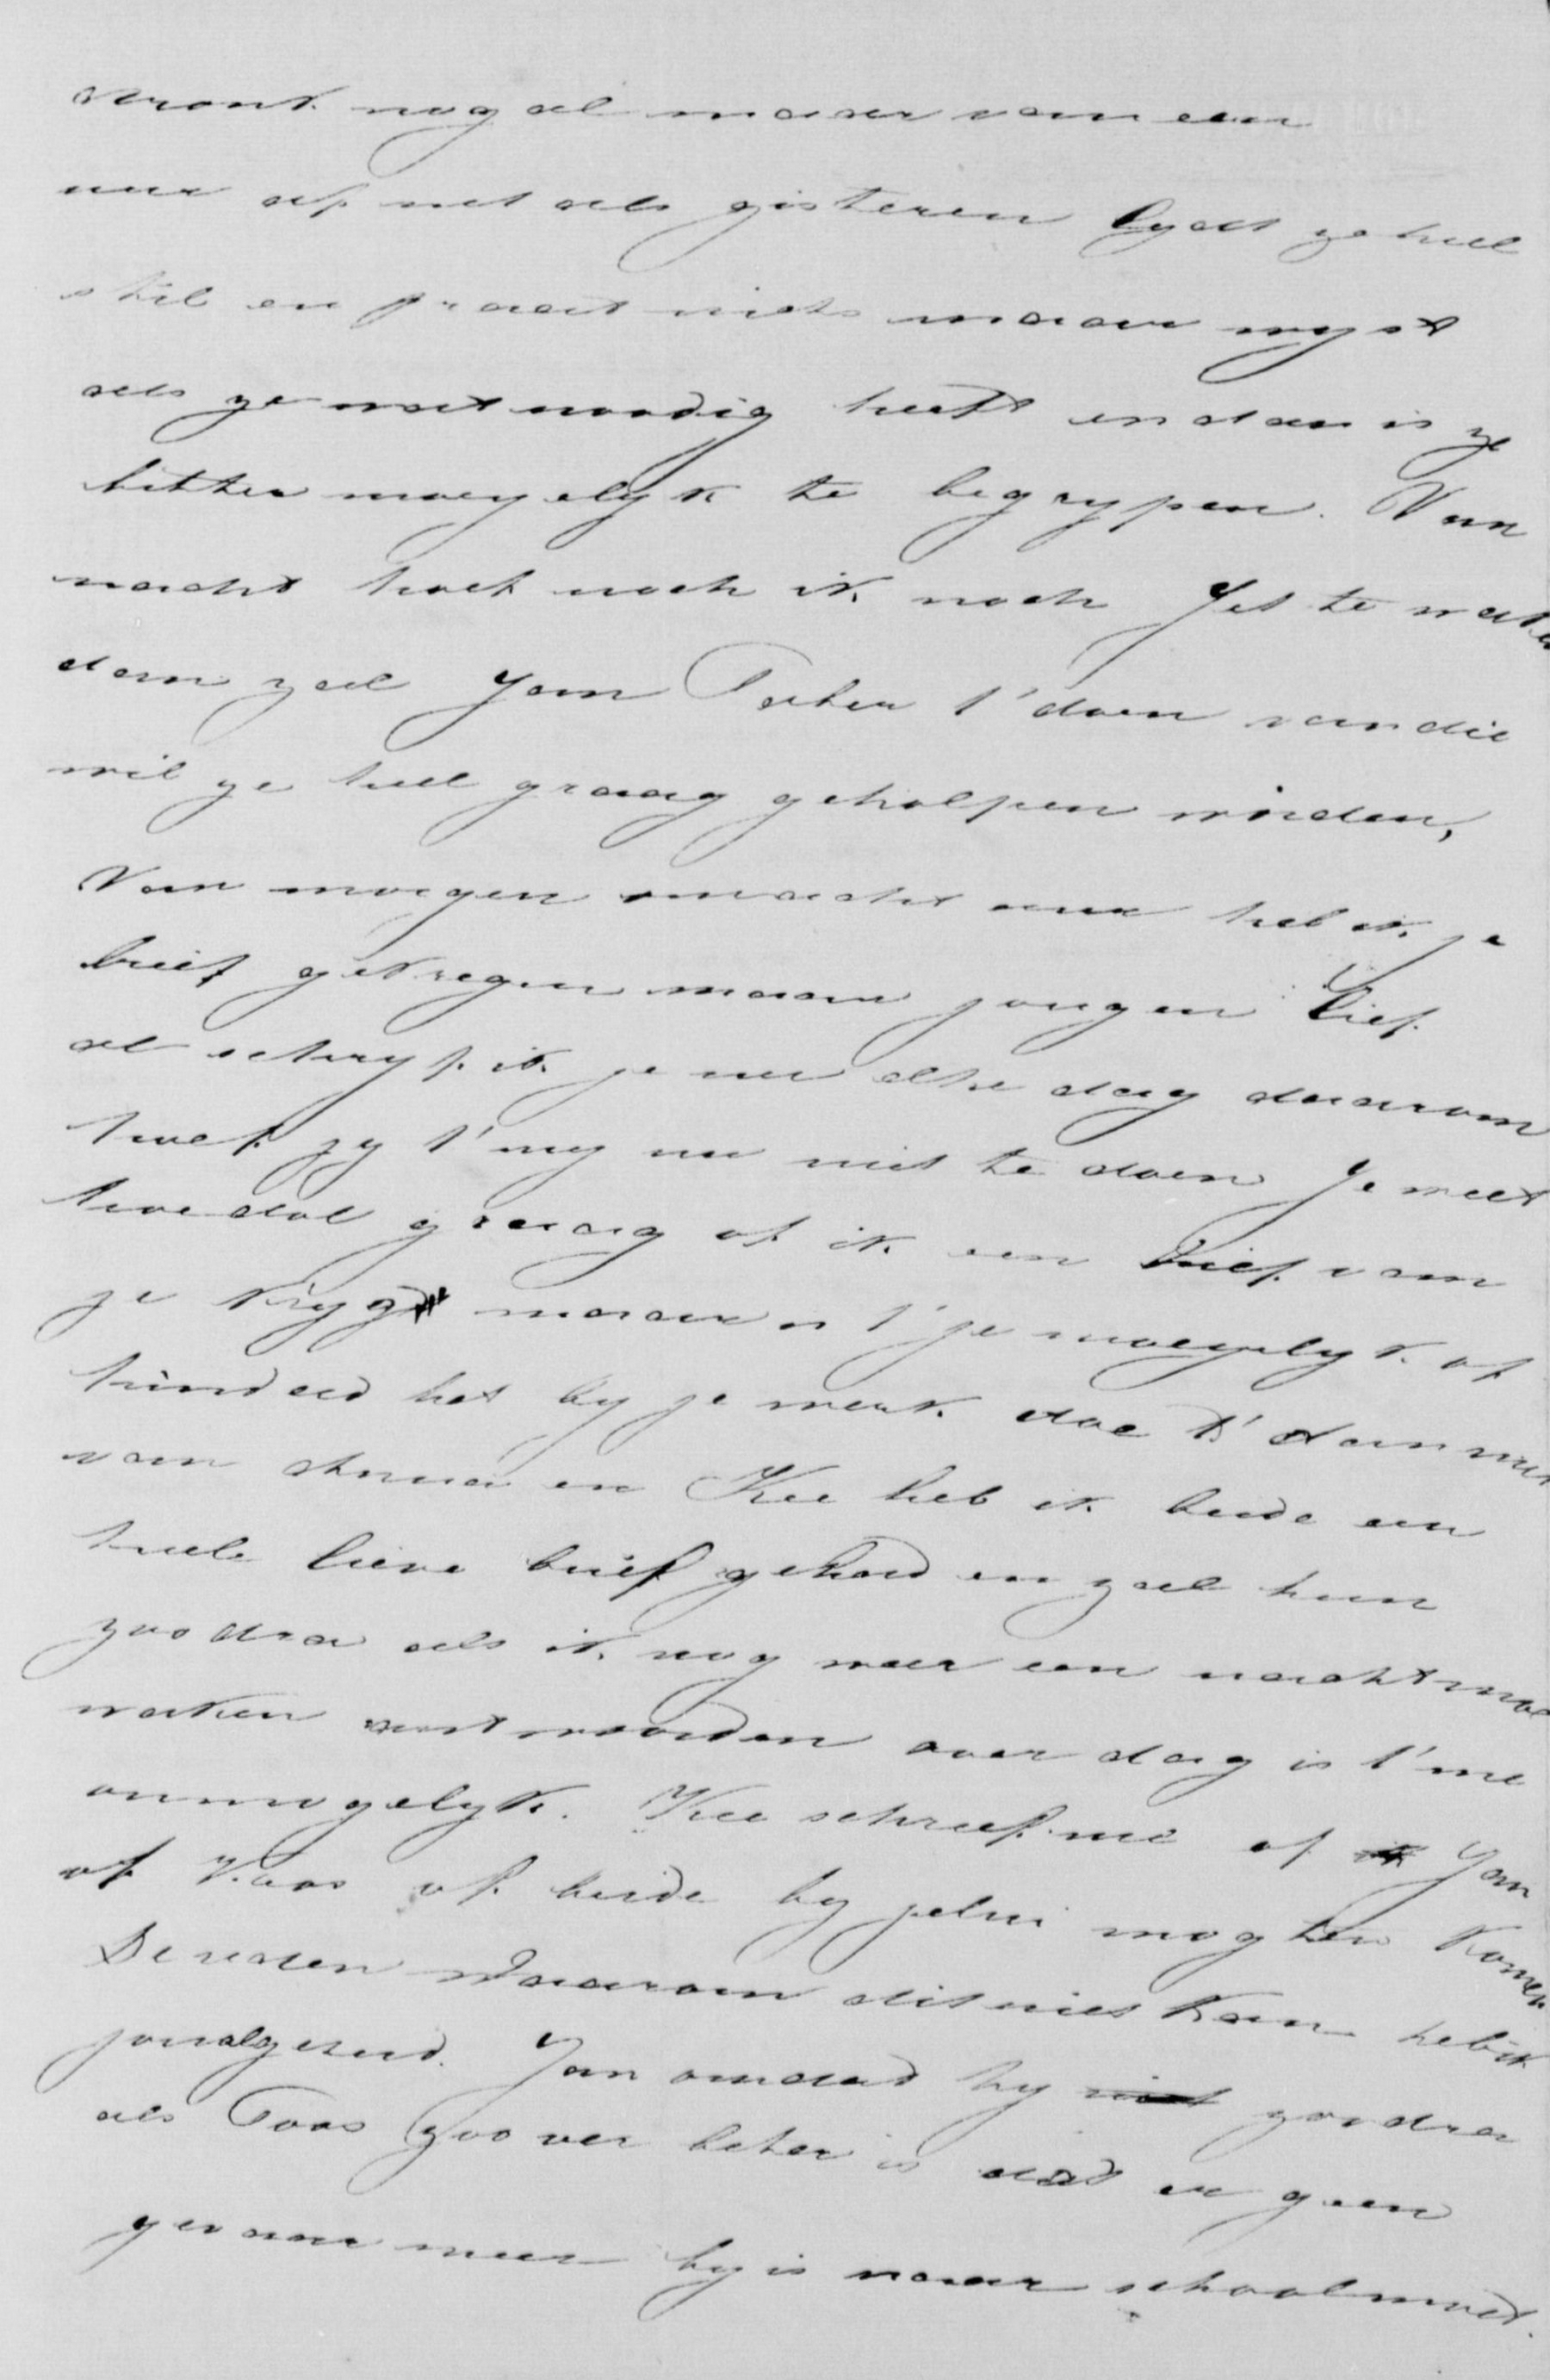 drank nog al maar van een
uur af net als gisteren lydt ze heel
stil en praat niets maar wyst
als ze wat noodig heeft en dan is ze
bitter moeyelyk te begrypen. Van
nacht hoef noch ik noch Jet te waken
dan zal Jan t' doen van die
wil ze heel graag geholpen worden,
Van morgen acht uur heb ik je
brief gekregen maar jongen lief
al schryf ik je nu elke dag daarom
hoef jy t' my nu niet te doen Je weet
hoe dol graag of ik een brief van
je kryg maar is t' je moeyelyk of
hinderd het by je werk doe t' dan niet
van en Kee heb ik beide een
heele lieve brief gehad en zal hun
zoodra als ik nog weer een nacht moet
waken antwoorden over dag is t' me
onmogelyk. Kee schreef me of Jan
of Klaas of beide by jelui mogten komen
De reden waarom dit niet kan heb ik
gezeid. Jan omdat hy zoodra
als Toos zoo ver beter is dat er geen
gevaar meer by is naar school moet.